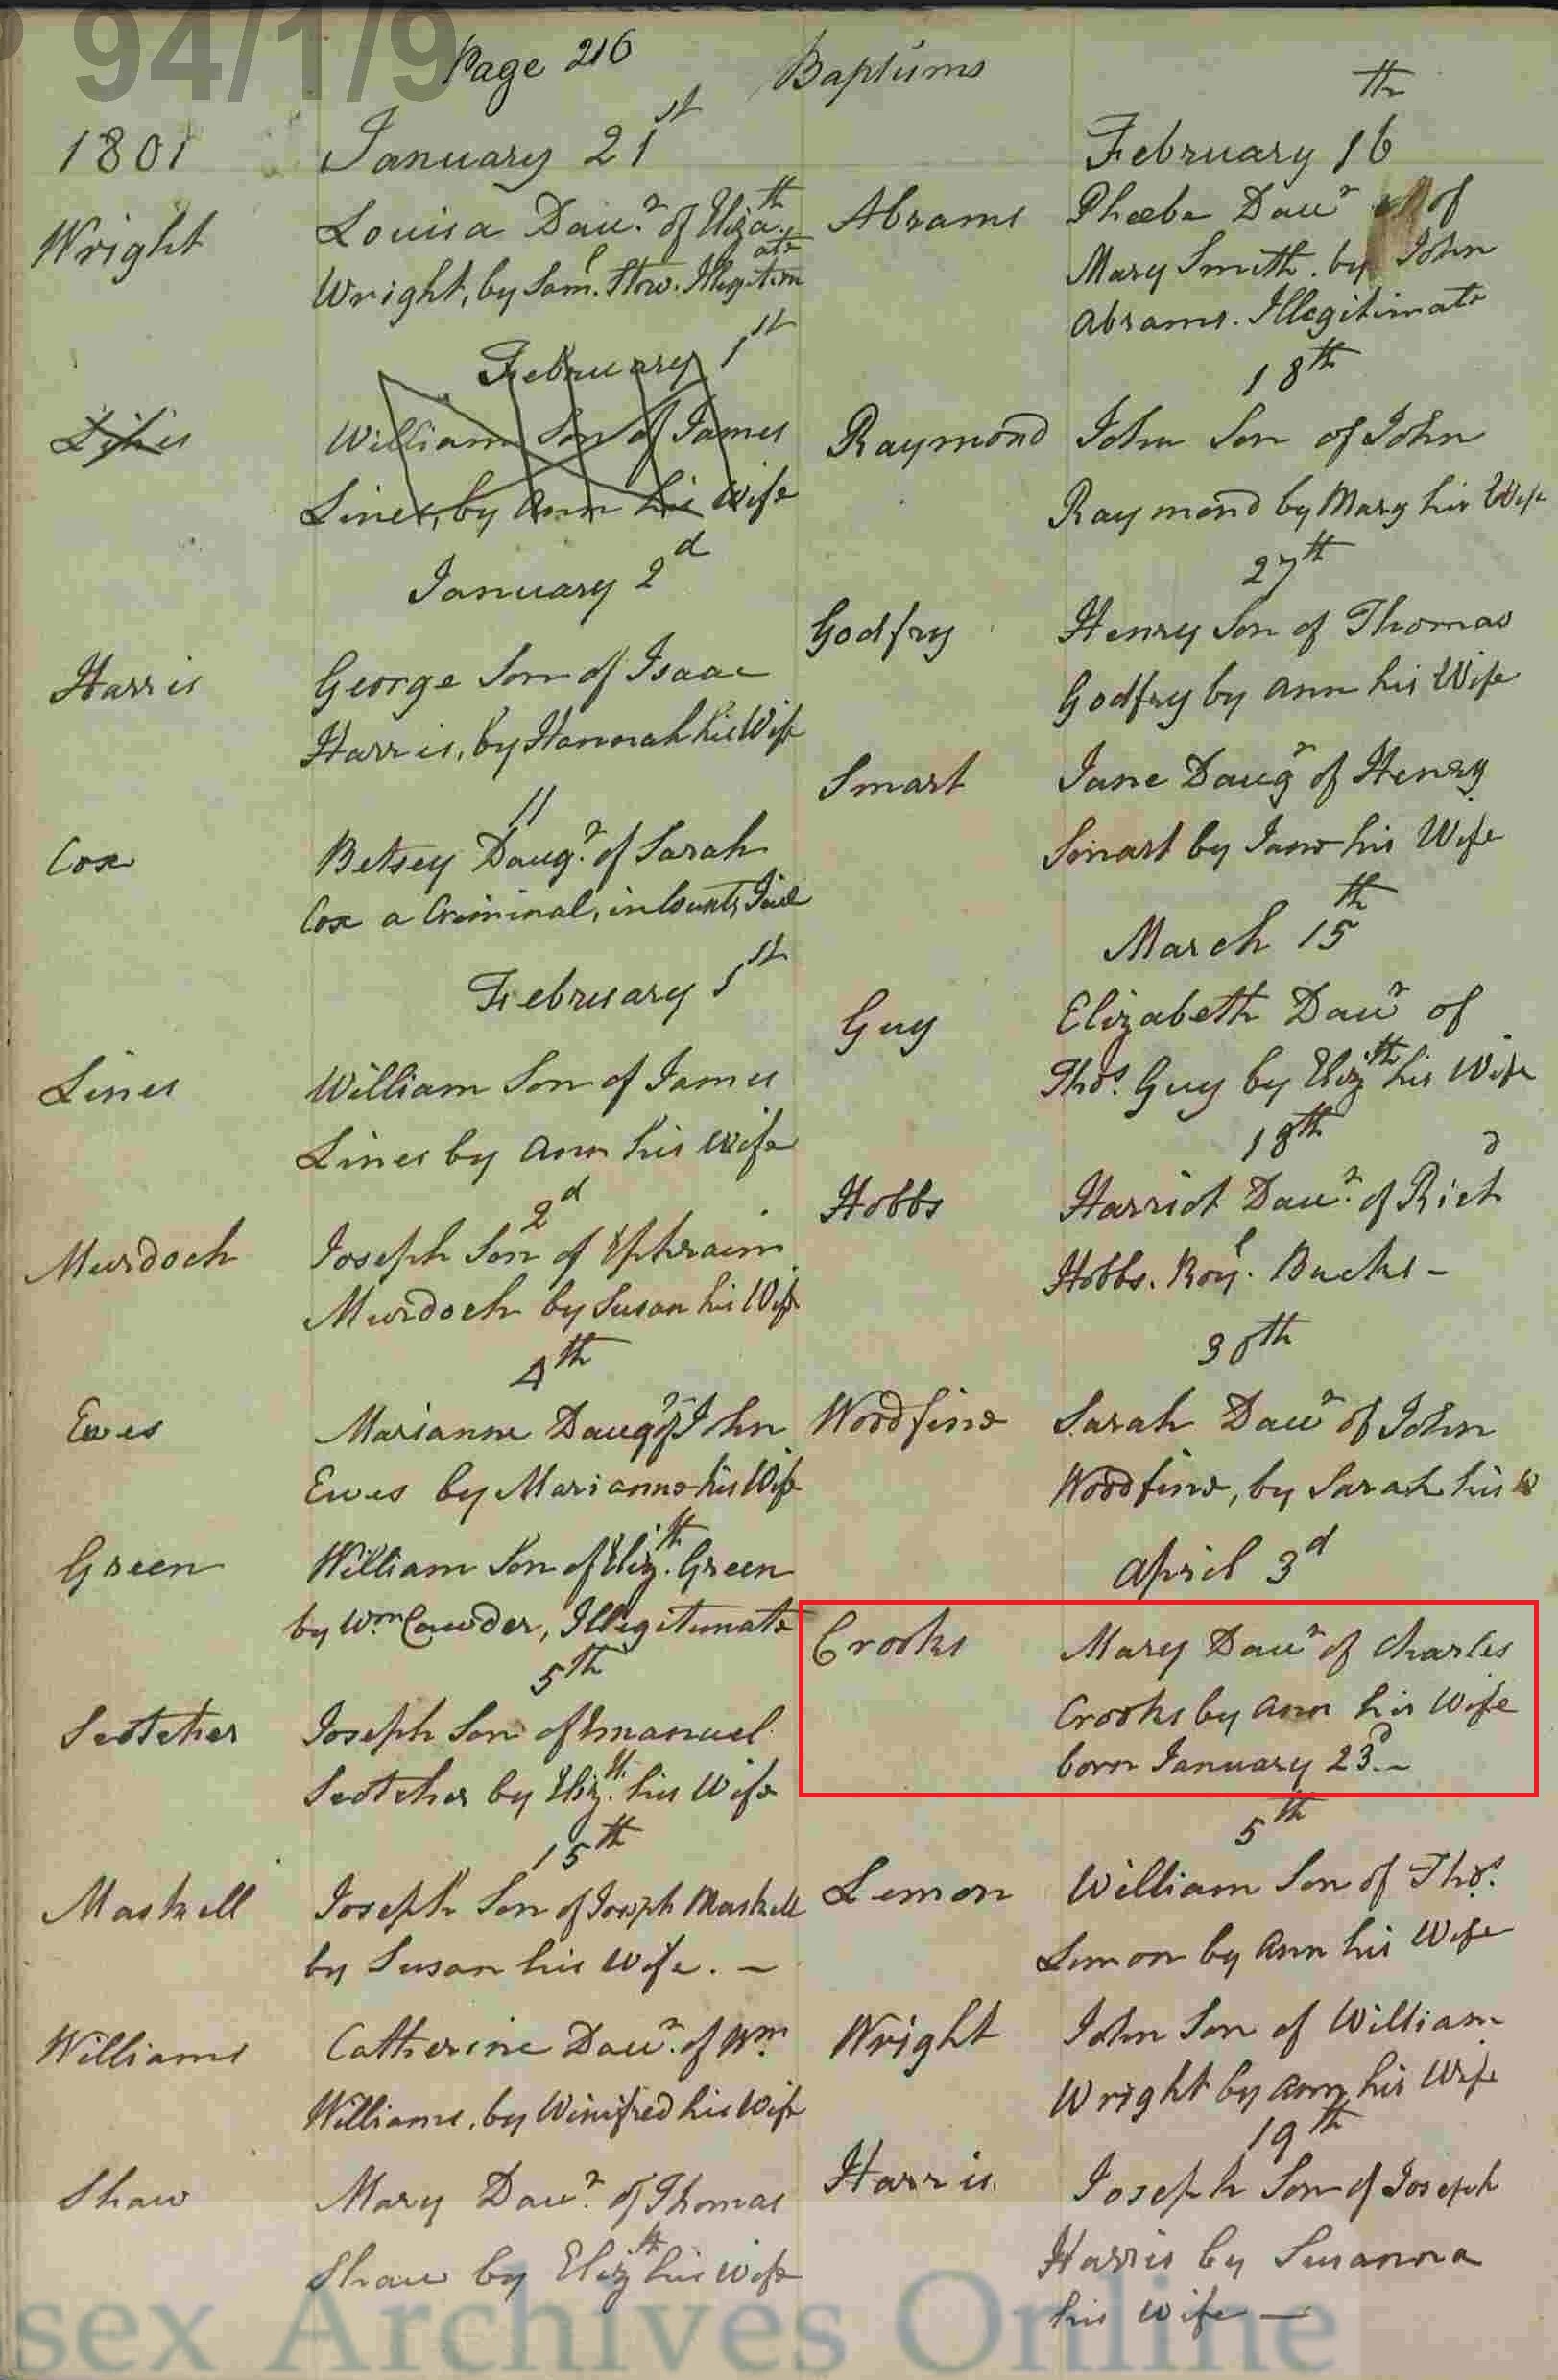 94/1/9
Page 216 Baptisms
1801
January 21st
Wright
Louisa Daur. of Eliza.th
Wright, by Saml. Stow. Illegitimate
February 1st
Lines
William Son of James
Lines, by Ann his Wife
January 2d
Harris
George Son of Isaac
Harris, by Hannah his Wife
11
Cox
Betsey Daugr. of Sarah
Cox a Criminal, in County Jail
February 1st
Lines
William Son of James
Lines by Ann his Wife
2d
Murdoch
Joseph Son of Ephraim
Murdoch by Susan his Wife
4th
Eves
Marianne Daugr of John
Eves by Marianne his Wife
Green
William Son of Eliz.th Green
by Wm Cawder, Illegitimate
5th
Scotcher
Joseph Son of Emanuel
Scotcher by Eliz.th his Wife
15th
Maskell
Joseph Son of Joseph Maskell
by Susan his Wife. –
Williams
Catherine Daur. of Wm.
Williams, by Winifred his Wife
Shaw
Mary Daur. of Thomas
Shaw by Elizth his Wife
February 16th
Abrams
Phœbe Daur of
Mary Smith. by John
Abrams. Illegitimate
18th
Raymond
John Son of John
Raymond by Mary his Wife
27th
Godfry
Henry Son of Thomas
Godfry by Ann his Wife
Smart
Jane Daugr of Henry
Smart by Jane his Wife
March 15th
Guy
Elizabeth Daur of
Thos. Guy by Elizth his Wife
18th
Hobbs
Harriot Daur. of Richd
Hobbs. Royl. Bucks –
30th
Woodfine
Sarah Daur of John
Woodfine, by Sarah his W
April 3d
Crooks
Mary Daur of Charles
Crooks by Ann his Wife
born January 23d. –
5th
Lemon
William Son of Thos.
Lemon by Ann his Wife
Wright
John Son of William
Wright by Ann his Wife
19th
Harris.
Joseph Son of Joseph
Harris by Susanna
his Wife —
sex Archives Online